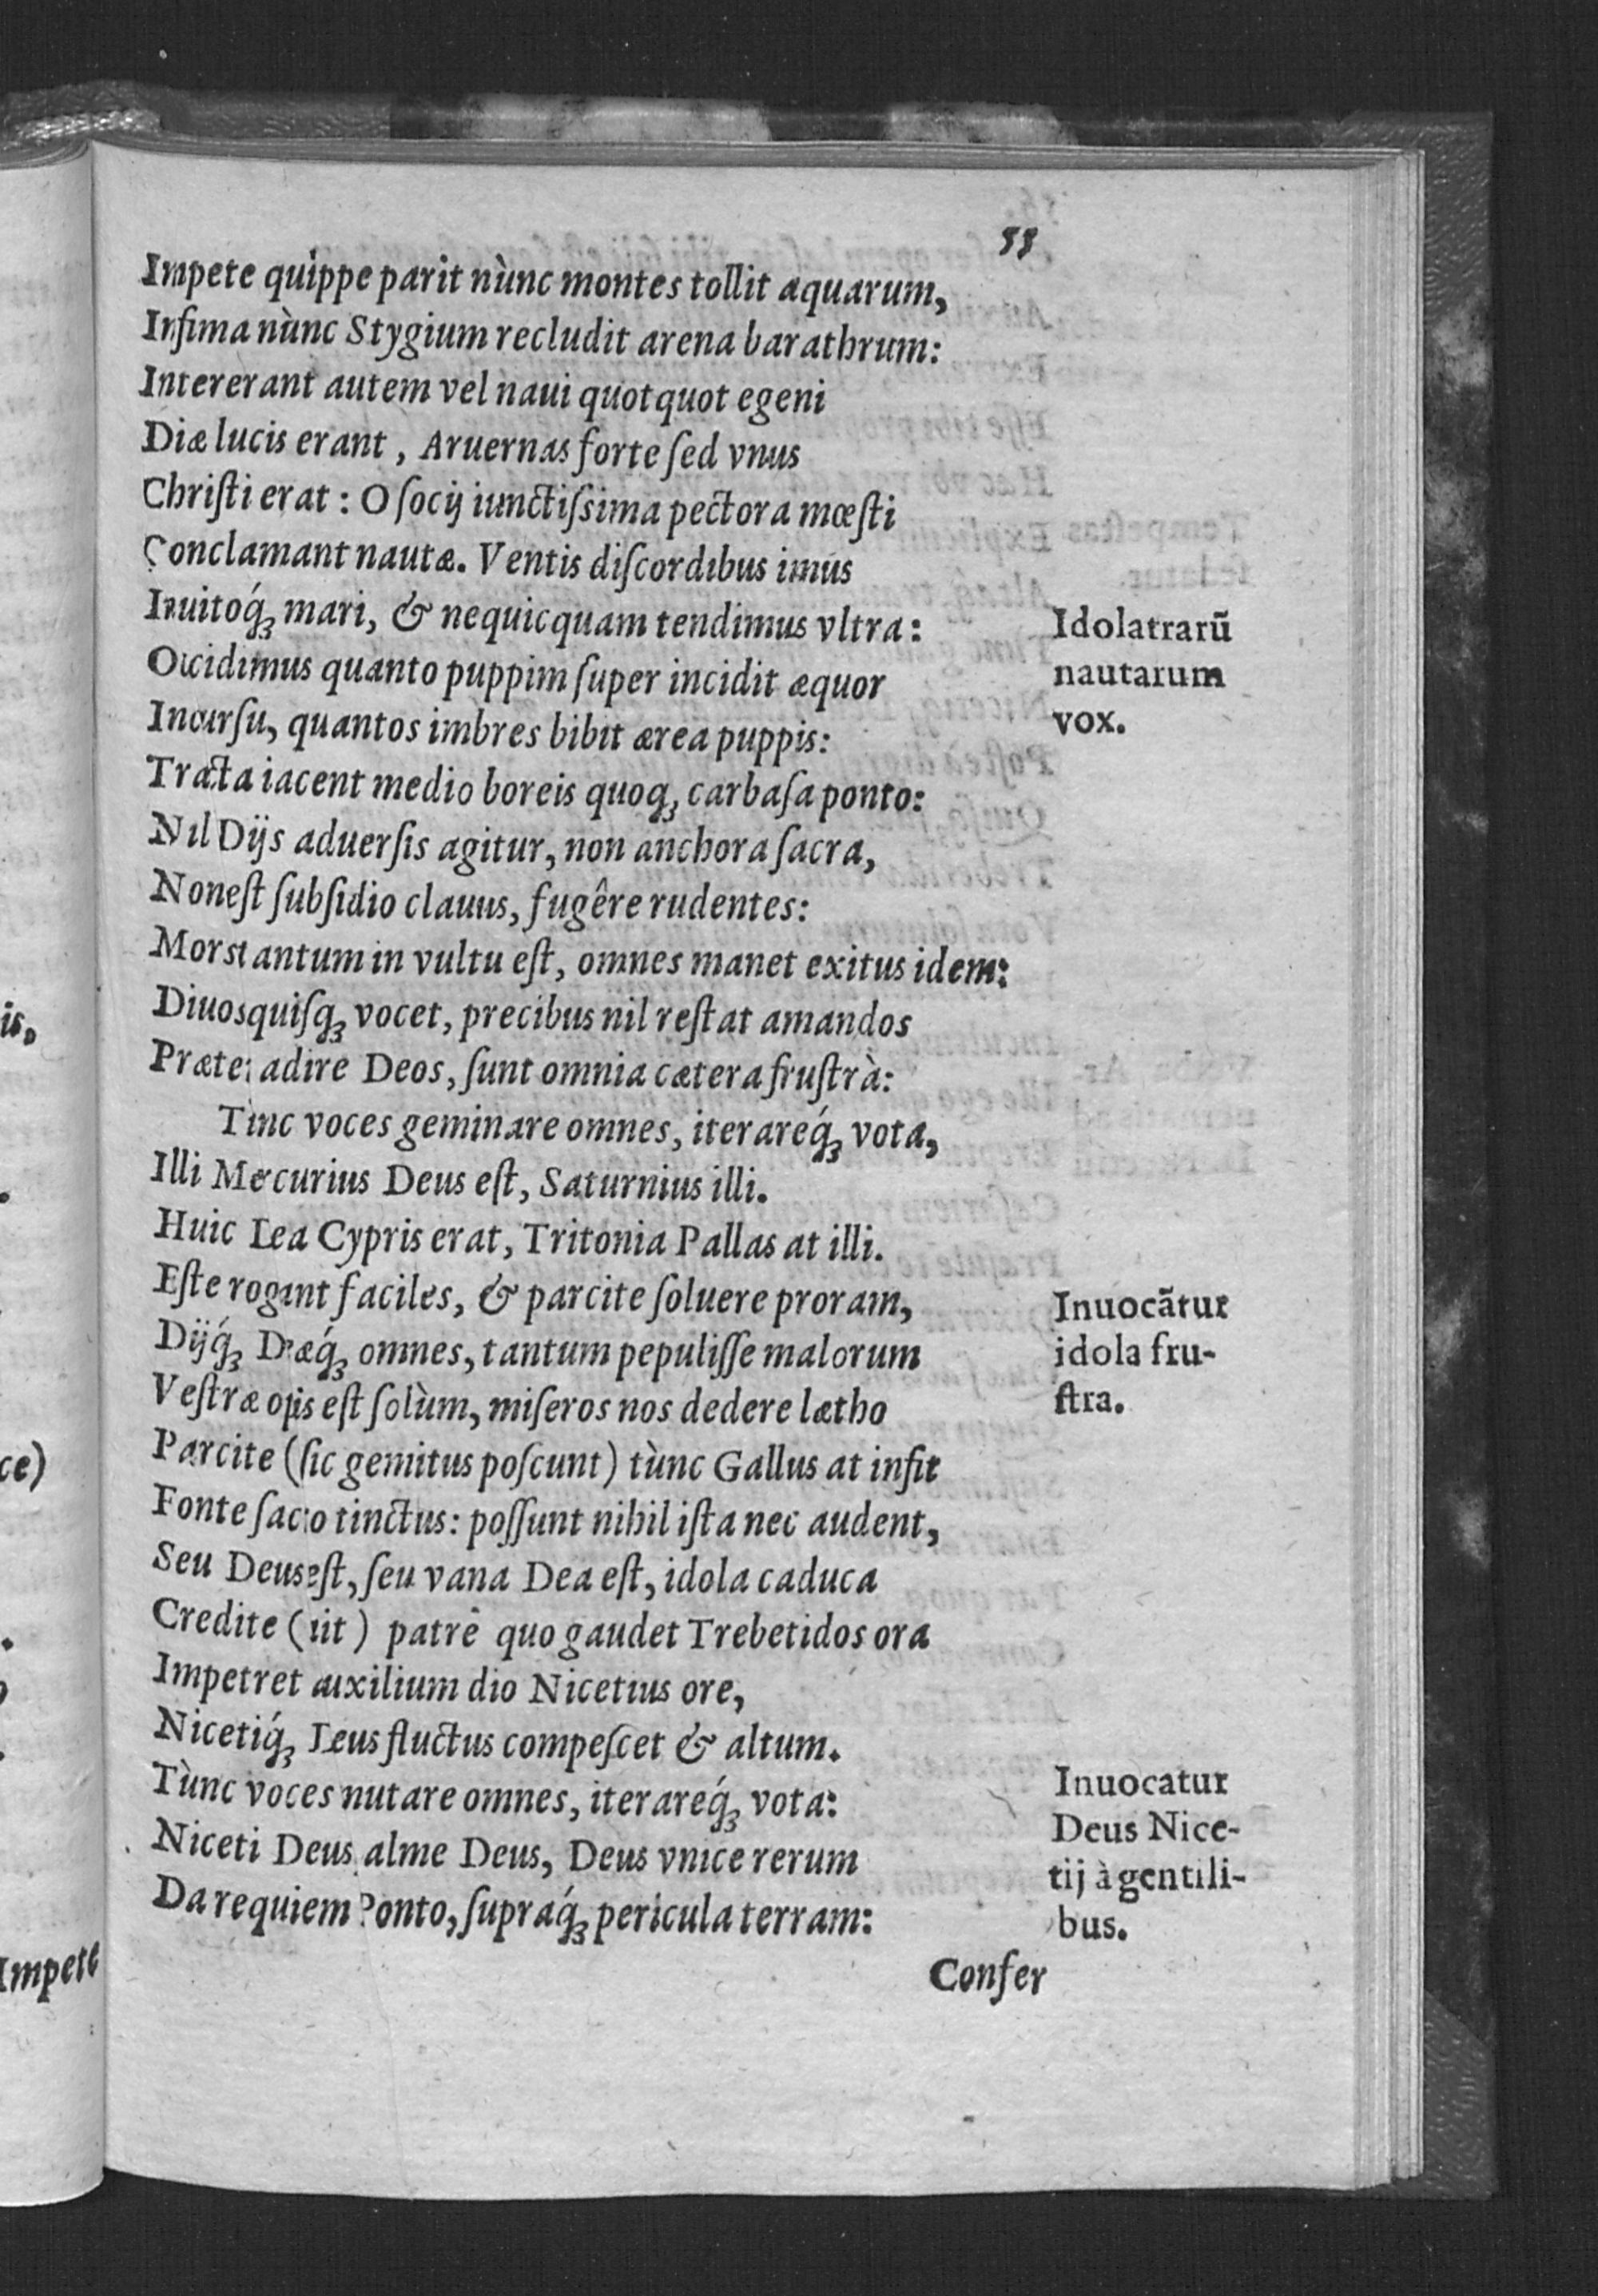 55
Impete quippe parit nùnc montes tollit aquarum,
Infima nùnc Stygium recludit arena barathrum:
Intererant autem vel naui quotquot egeni
Diæ lucis erant, Aruernas forte ſed vnus
Chriſti erat: O ſocij iunctiſsima pectora mœſti
Conclamant nautæ. Ventis diſcordibus imus
Inuitoq́ꝫ mari, & nequicquam tendimus vltra:
Idolatrarũ
nautarum
vox.
Occidimus quanto puppim ſuper incidit æquor
Incurſu, quantos imbres bibit ærea puppis:
Tracta iacent medio boreis quoqꝫ carbaſa ponto:
Nil Dijs aduerſis agitur, non anchora ſacra,
Non eſt ſubſidio clauus, fugêre rudentes:
Mors tantum in vultu eſt, omnes manet exitus idem:
Diuos quiſqꝫ vocet, precibus nil reſtat amandos
Præter adire Deos, ſunt omnia cætera fruſtrà:
Tùnc voces geminare omnes, iterareq́ꝫ vota,
Illi Mercurius Deus eſt, Saturnius illi.
Huic Dea Cypris erat, Tritonia Pallas at illi.
Eſte rogant faciles, & parcite ſoluere proram,
Inuocãtur
idola fru-
ſtra.
Dijq́ꝫ Deæq́ꝫ omnes, tantum pepuliſſe malorum
Veſtræ opis eſt ſolùm, miſeros nos dedere lætho
Parcite (ſic gemitus poſcunt) tùnc Gallus at infit
Fonte ſacro tinctus: poſſunt nihil iſta nec audent,
Seu Deus eſt, ſeu vana Dea eſt, idola caduca
Credite (ait) patrē quo gaudet Trebetidos ora
Impetret auxilium dio Nicetius ore,
Nicetiq́ꝫ Deus fluctus compeſcet & altum.
Tùnc voces nutare omnes, iterareq́ꝫ vota:
Inuocatur
Deus Nice-
tij à gentili-
bus.
Niceti Deus alme Deus, Deus vnice rerum
Da requiem Ponto, ſupraq́ꝫ pericula terram:
Confer
is,
ce)
Impete